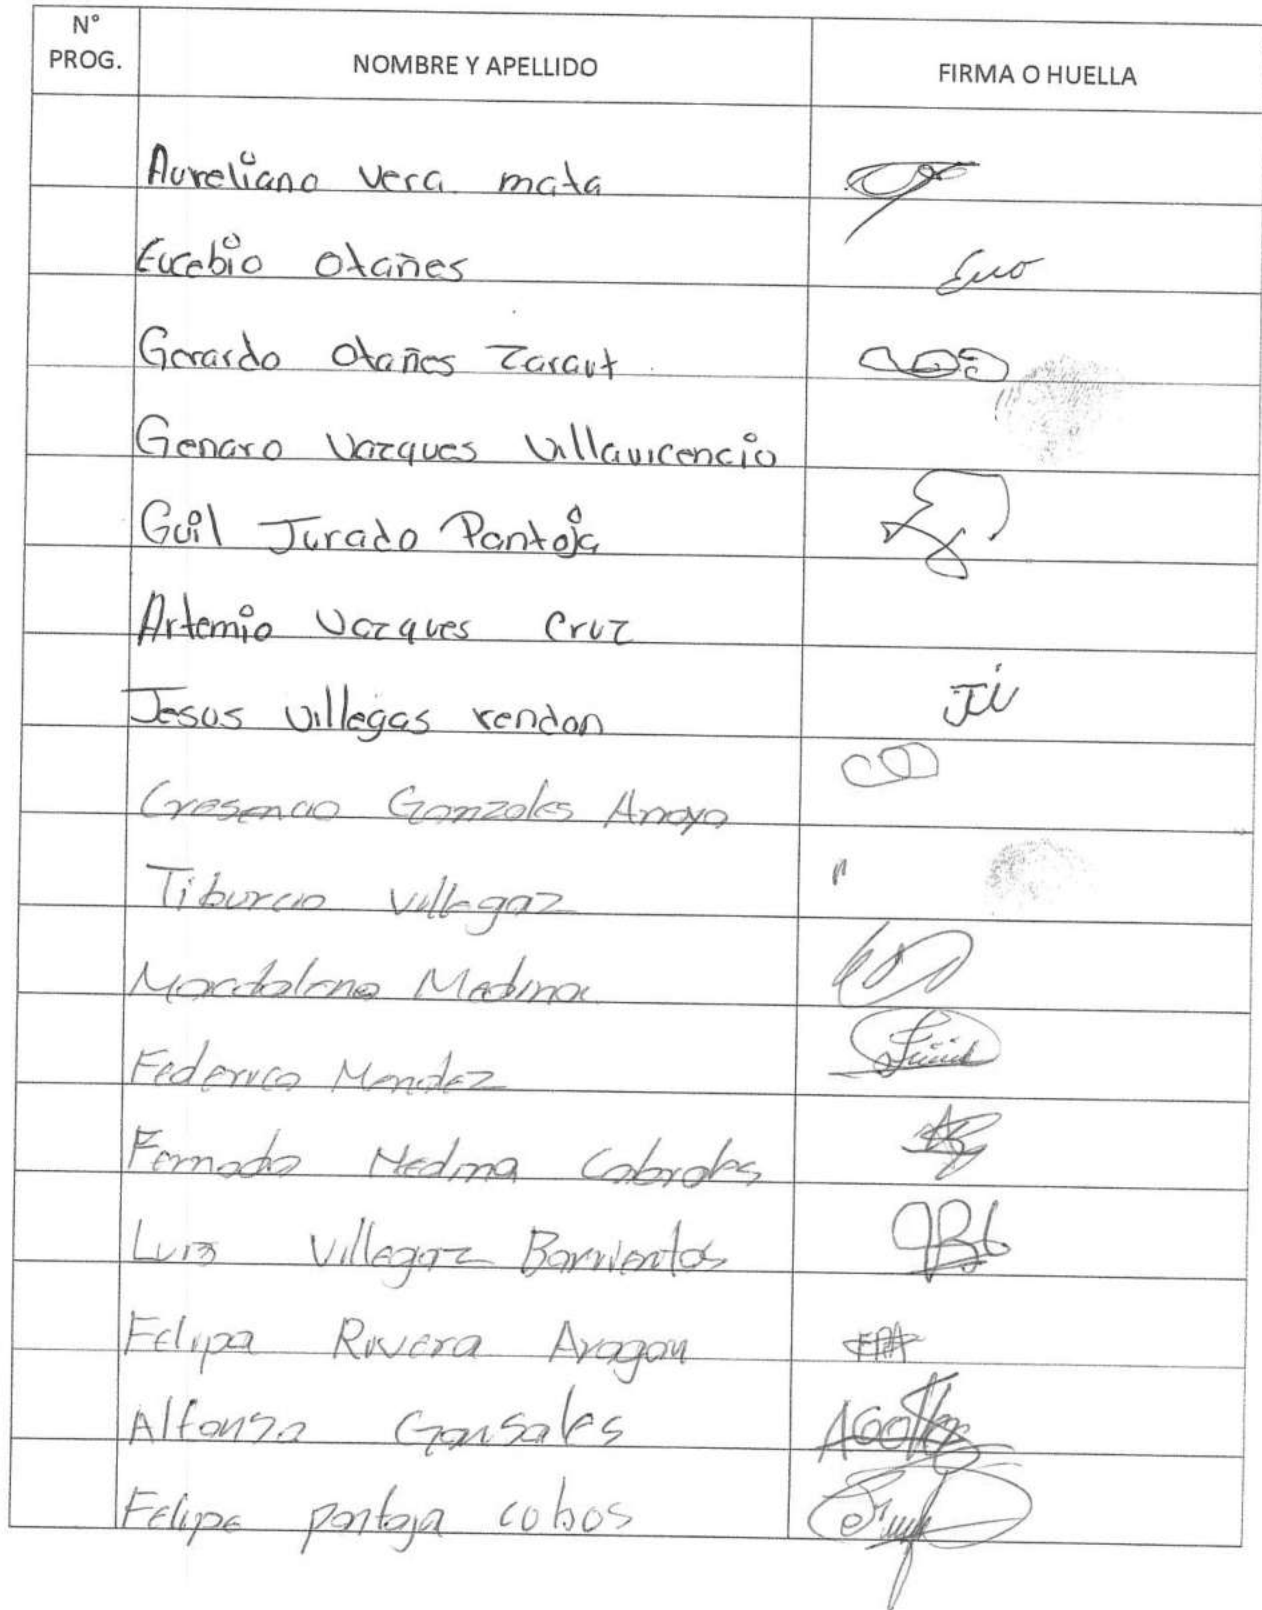 N°
PROG.
NOMBRE Y APELLIDO
FIRMA O HUELLA
Aureliano Vera mata
Eucebio Otañes
Gerardo Otañes Zaraut
Genaro Vazques Villavicencio
Guil Jurado Pantoja
Artemio Vazques Cruz
Jesus villegas rendon
JV
Cresencio Gonzales Arroyo
Tiburcio villegaz
Magdalena Medina
Federico Mendez
Fernado Medina Cabrales
Luiz Villegaz Barrientos
Felipa Rivera Aragon
FRA
Alfonso Gonsales
Felipe pantoja cobos